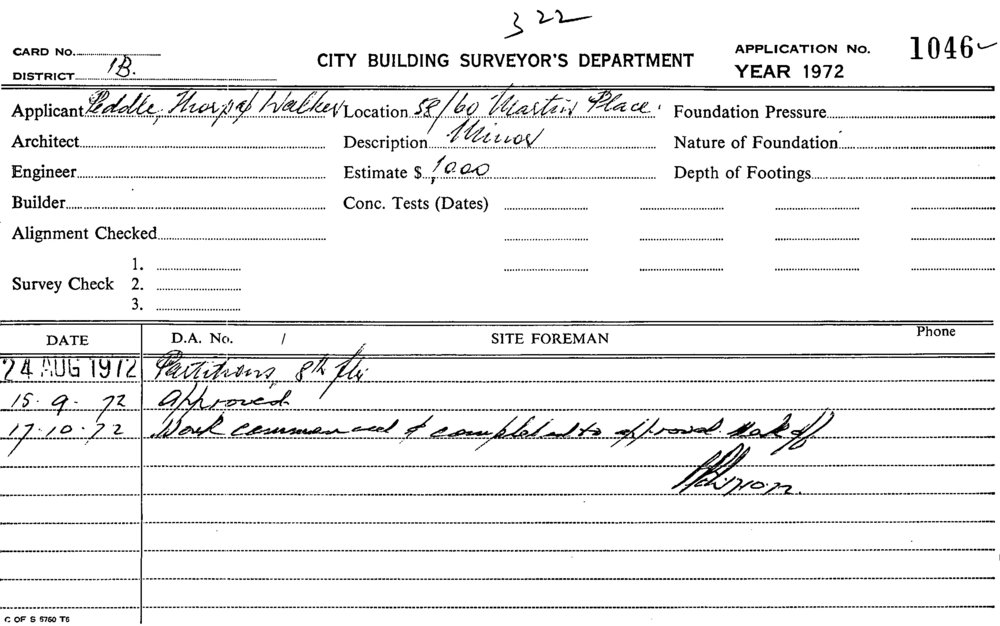 3 22
CARD No.
DISTRICT 1B.
CITY BUILDING SURVEYOR'S DEPARTMENT
APPLICATION No. 1046
YEAR 1972
Applicant Peddle, Thorp & Walker Location 58/60 Martin Place. Foundation Pressure
Architect Description Minor Nature of Foundation
Engineer Estimate $ 1,000 Depth of Footings
Builder Conc. Tests (Dates)
Alignment Checked
1.
Survey Check 2.
3.
DATE D.A. No. / SITE FOREMAN Phone
24 AUG 1972 Partitions, 8th flr
15.9.72 Approved
17.10.72 Work commenced & completed to approval. off
C OF S 5750 T6